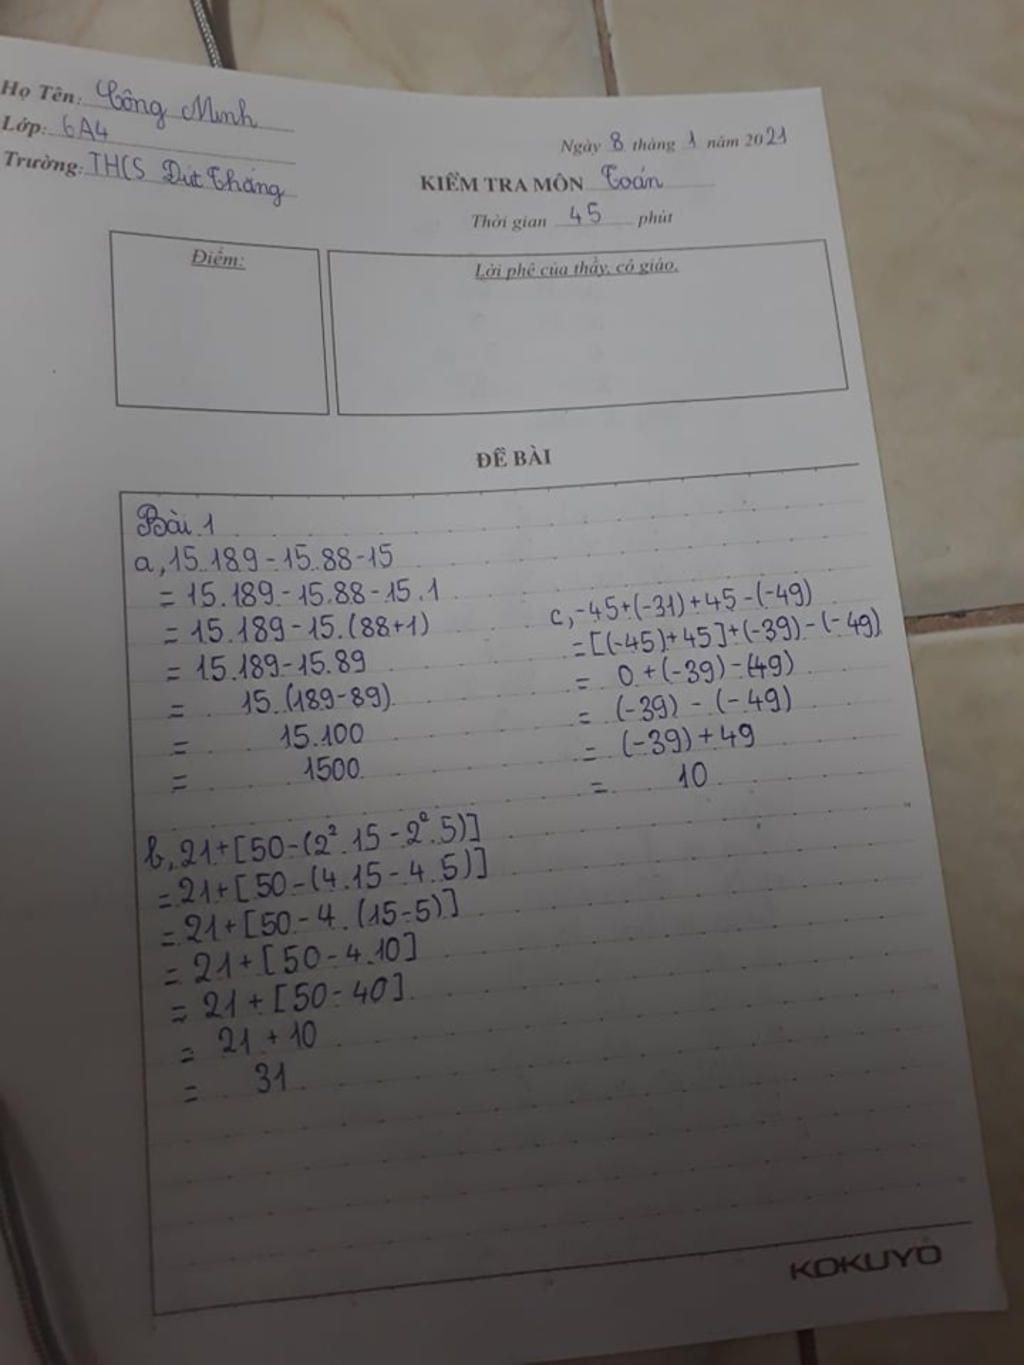 Họ Tên: Công Minh
Lớp: 6A4
Trường: THCS Đức Thắng
Ngày 8 tháng 1 năm 2021
KIỂM TRA MÔN Toán
Thời gian 45 phút
Điểm:
Lời phê của thầy, cô giáo.
ĐỀ BÀI
Bài 1
a, 15.189-15.88-15
= 15.189-15.88-15.1
= 15.189-15.(88+1)
= 15.189-15.89
= 15.(189-89)
= 15.100
= 1500
c, -45+(-31)+45-(-49)
=[(-45)+45]+(-39)-(-49)
= 0+(-39)-(49)
= (-39)-(-49)
= (-39)+49
= 10
b, 21+[50-(2².15-2².5)]
=21+[50-(4.15-4.5)]
=21+[50-4.(15-5)]
=21+[50-4.10]
= 21+[50-40]
= 21+10
= 31
KOKUYO